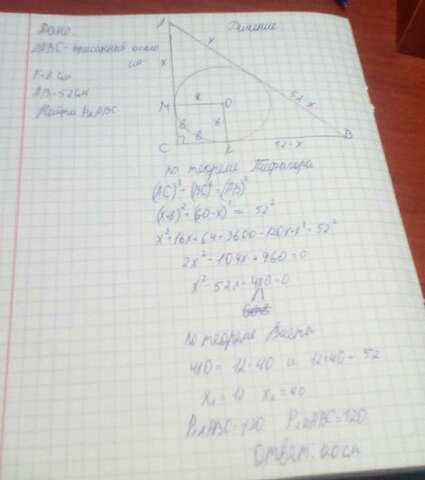 Дано
Решение
ΔABC - описанный около
AB=52см
Найти PΔABC
A
x
x
52-x
M
8
O
8
8
8
C
52-x
B
по теореме Пифагора
(AC)²+(BC)²=(AB)²
(x+8)²+(60-x)²=52²
x²+16x+64+3600-120x+x²=52²
2x²-104x+960=0
x²-52x+480=0
по теореме Виета
480=12·40 и 12+40=52
x₁=12 x₂=40
P₁ΔABC=120 P₂ΔABC=120
Ответ: 120см